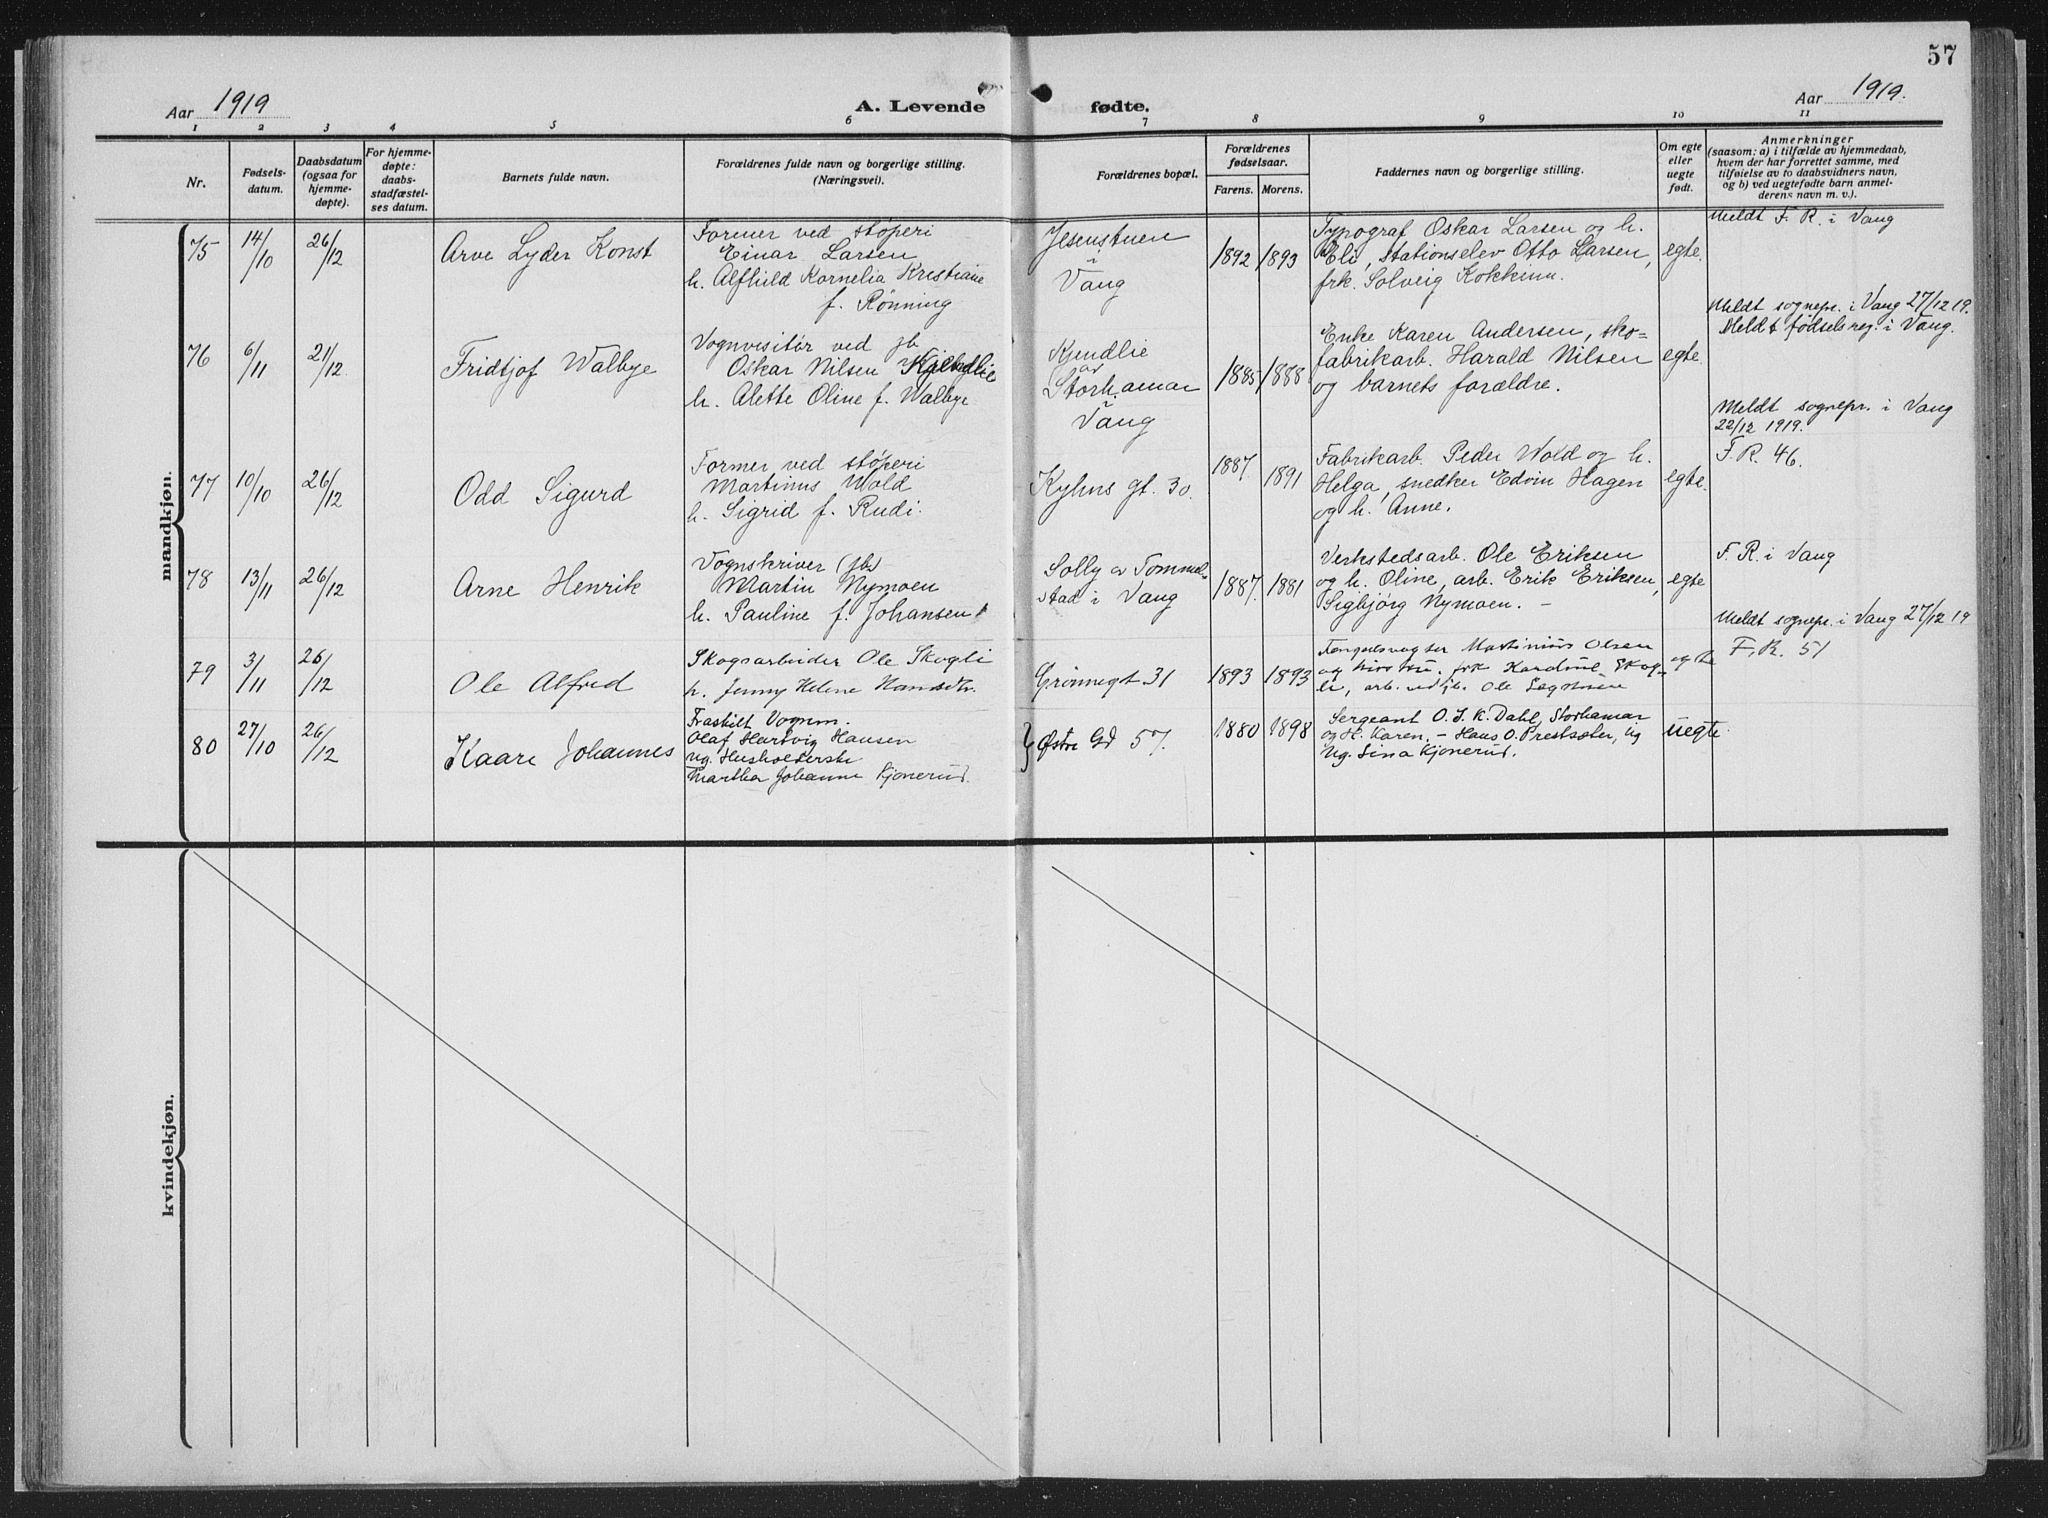 57
Aar 1919
A. Levende
fødte.
Aar 1919.
1 2 3 4 5 6 7 8 9 10 11
Nr.
Fødsels-
datum.
Daabsdatum
(ogsaa for
hjemme-
døpte).
For hjemme-
døpte:
daabs-
stadfæstel-
ses datum.
Barnets fulde navn.
Forældrenes fulde navn og borgerlige stilling.
(Næringsvei).
Forældrenes bopæl.
Forældrenes
fødselsaar.
Farens. Morens.
Faddernes navn og borgerlige stilling.
Om egte
eller
uegte
født.
Anmerkninger
(saasom: a) i tilfælde av hjemmedaab,
hvem der har forrettet samme, med
tilføielse av to daabsvidners navn,
og b) ved uegtefødte barn anmel-
derens navn m. v.).
mandkjøn.
75
14/10
26/12
Arve Lyder Konst
Former ved støperi
Einar Larsen
h. Alfhild Kornelia Kristiane
f. Rønning
Jesenstuen
i
Vang
1892 1893
Typograf Oskar Larsen og h.
Eli, Stationselev Otto Larsen,
frk. Solveig Kokkinn.
egte.
Meldt F. R. i Vang
Meldt sognepr. i Vang 27/12 19.
76
6/11
21/12
Fridtjof Walbye
Vognvisitør ved jb
Oskar Nilsen Kjendlie
h. Alette Oline f. Walbye
Kjendlie
av
Storhamar
i
Vang
1885 1888
Enke Karen Andersen, sko-
fabrikarb. Harald Nilsen
og barnets forældre.
egte.
Meldt fødselsreg. i Vang.
Meldt sognepr. i Vang
22/12 1919.
77
10/10
26/12
Odd Sigurd
Former ved støperi
Martinus Wold
h. Sigrid f. Rudi.
Kyhns gt. 30.
1887. 1891
Fabrikarb. Peder Wold og h.
Helga, snedker Edvin Hagen
og h. Anne.
egte.
F. R. 46.
78
13/11
26/12
Arne Henrik
Vognskriver (jb)
Martin Nymoen
h. Pauline f. Johansen
Solly av Tommel-
stad i Vang
1887. 1881
Verkstedsarb. Ole Eriksen
og h. Oline, arb. Erik Eriksen,
Sigbjörg Nymoen. –
egte
F. R. i Vang
Meldt sognepr. i Vang 27/12 19
79
3/11
26/12
Ole Alfred
Skogsarbeider Ole Skogli
h. Jenny Helene Hansdtr.
Grønnegt 31
1893 1893
Martinius Olsen
og hustru, frk Skog-
li, arb. ved jb. Ole
egte
F. R. 51
80
27/10
26/12
Kaare Johannes
Fraskilt Vognm.
Olaf Hartvig Hansen
Ug. Husholderske
Martha Johanne Kjonerud.
Østre Gd 57.
1880 1898
Sergeant O. J. K. Dahl, Storhamar
og H. Karen. – Hans O. Prestsæter, ug
Ug. Lina Kjonerud.
uegte
kvindekjøn.